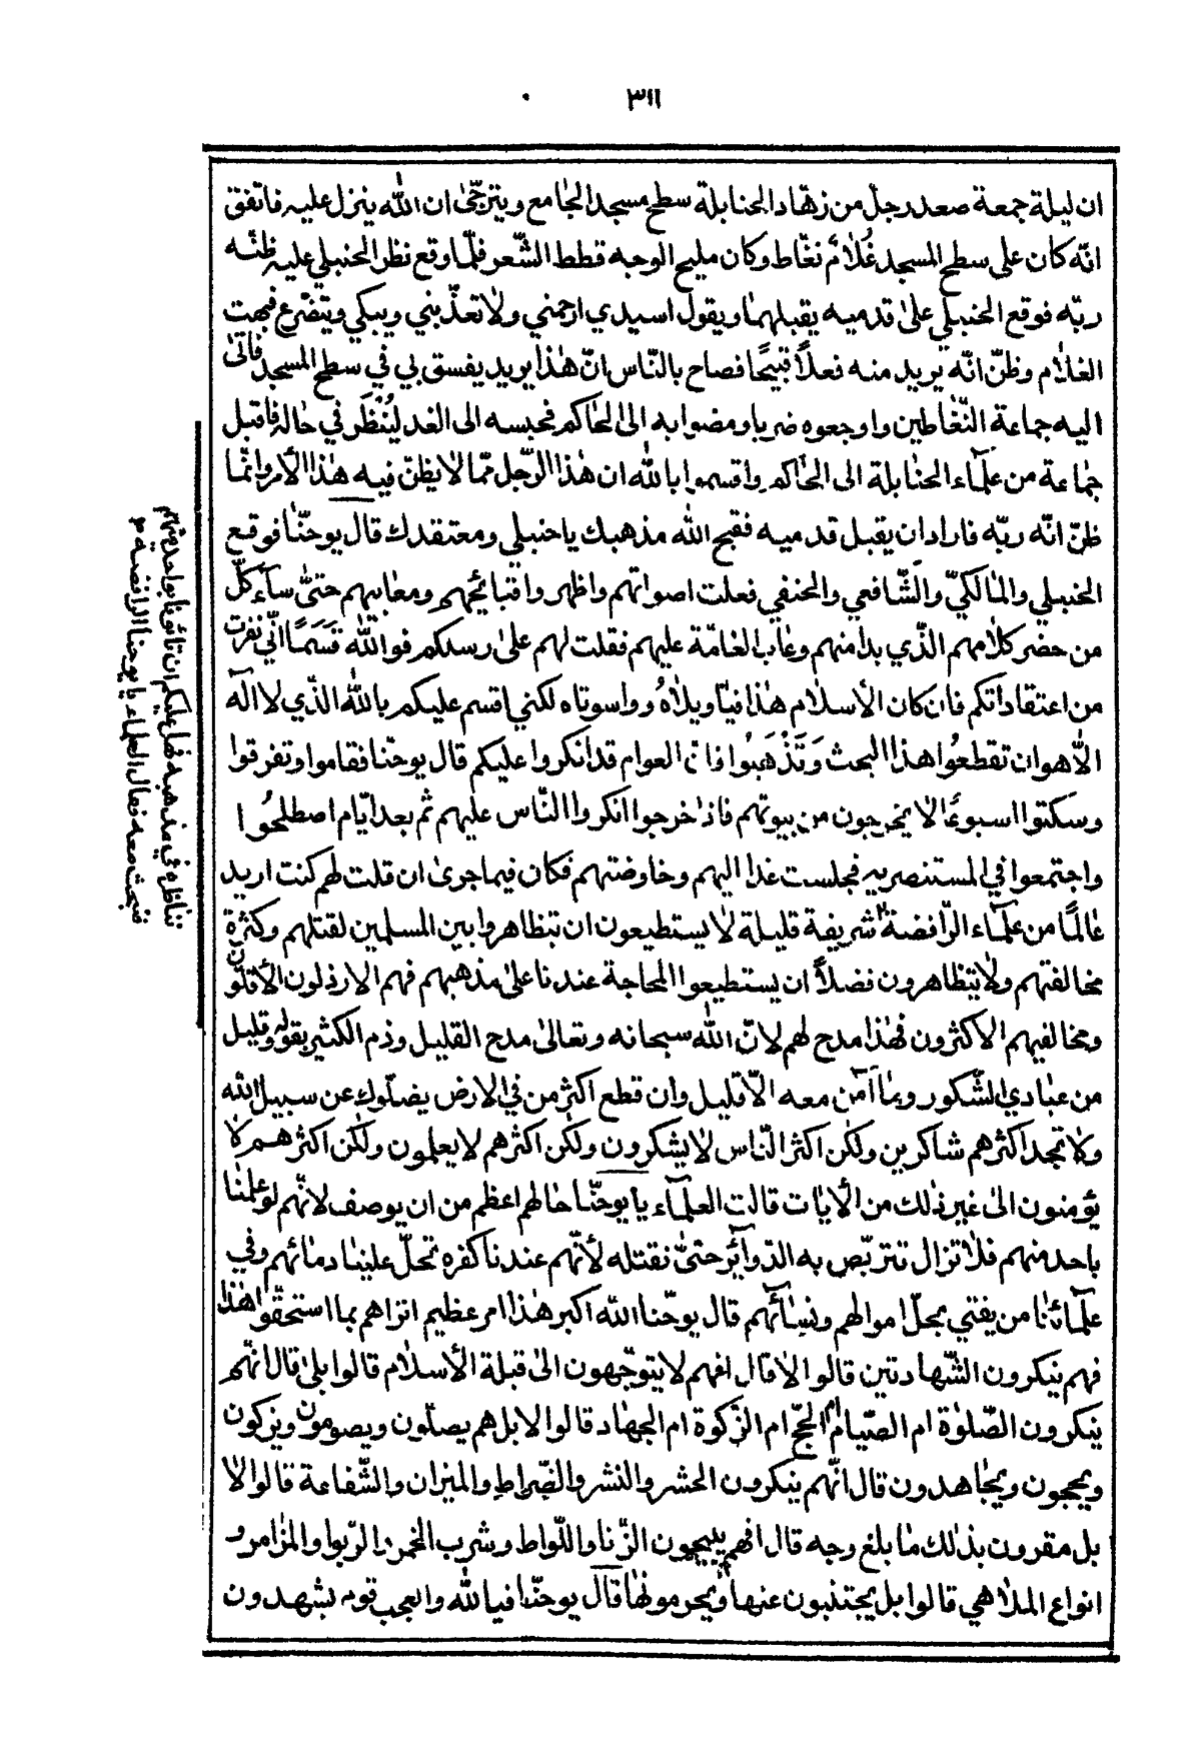 ٣١١
ان ليلة جمعة صعد رجل من زهّاد الحنابلة سطح مسجد الجامع ويترجّى ان الله ينزل عليه فاتفق
انّه كان على سطح المسجد غُلامٌ نفّاط وكان مليح الوجه قطط الشّعر فلمّا وقع نظر الحنبلي عليه ظنّه
ربّه فوقع الحنبلي على قدميه يقبلهما ويقول اسيدي ارحمني ولا تعذّبني ويبكي ويتضّرع فبهت
الغلام وظنّ انّه يريد منه فعلاً قبيحًا فصاح بالنّاس انّ هذا يريد يفسق بي في سطح المسجد فاتى
اليه جماعة النّفاطين واوجعوه ضربا ومضوا به الى الحاكم فحبسه الى الغد ليُنْظَر في حاله فاقبل
جماعة من علمآء الحنابلة الى الحاكم واقسموا بالله ان هذا الرّجل ممّا لا يظنّ فيه هذا الأمر وانّما
ظنّ انّه ربّه فاراد ان يقبل قدميه فقبح الله مذهبك يا حنبلي ومعتقدك قال يوحنّا فوقع
الحنبلي والمالكيّ والشّافعي والحنفي فعلت اصواتهم واظهروا قبائحهم ومعايبهم حتىّ سآء كلّ
من حضر كلامهم الّذي بدا منهم وعاب العامّة عليهم فقلت لهم على رسلكم فوالله قَسَمًا انّي نفرت
من اعتقاداتكم فان كان الأسلام هذا فيا ويلاهُ وواسوتاه لكني اقسم عليكم بالله الّذي لا اله
الّا هو ان تقطعُوا هذا البحث وَتَذْهَبُوا فانّ العوام قد انكروا عليكم قال يوحّنا فقاموا وتفرقوا
وسكتوا اسبوعًا لا يخرجون من بيوتهم فاذا خرجوا انكروا النّاس عليهم ثم بعد ايّام اصطلحُوا
واجتمعوا في المستنصريه فجلست غدا اليهم وخاوضتهم فكان فيما جرى ان قلت لهم كنت اريد
عالمًا من علمآء الرّافضة شريفة قليلة لا يستطيعون ان تبظاهروا بين المسلمين لقتلهم وكثرة
مخالفتهم ولا يتظاهرون فضلاً ان يستطيعوا المحاجة عندنا على مذهبهم فهم الارذلون الأقلّون
ومخالفيهم الاكثرون فهذا مدح لهم لانّ الله سبحانه وتعالى مدح القليل وذم الكثير بقوله وقليل
من عبادي الشّكور وما آمن معه الّا قليل وان قطع اكثر من في الارض يضلّوك عن سبيل الله
ولا تجد اكثرهم شاكرين ولكن اكثر النّاس لا يشكرون ولكن اكثرهم لا يعلمون ولكن اكثرهم لا
يؤمنون الى غير ذلك من الأيات قالت العلمآء يا يوحنّا حالهم اعظم من ان يوصف لانّهم لو علمنا
باحد منهم فلا تزال تتربّص به الدّوآئر حتىّ نقتله لأنّهم عندنا كفره تحلّ علينا دمائهم وفي
علمائنا من يفتي بحلّ اموالهم ونسآئهم قال يوحّنا الله اكبر هذا امر عظيم اتراهم بما استحقّوا هذا
فهم ينكرون الشّهادتين قالوا لا قال افهم لا يتوجّهون الى قبلة الأسلام قالوا بلى قال انّهم
ينكرون الصّلوة ام الصّيام ام الحجّ ام الزّكوة ام الجهاد قالوا لا بل هم يصلّون ويصومون ويزكون
ويحجون ويجاهدون قال انّهم ينكرون الحشر والنشر والصّراط والميزان والشّفاعة قالوا لا
بل مقرون بذلك ما بلغ وجه قال افهم يبيحون الزّنا واللّواط وشرب الخمر والرّبوا والمزامر و
انواع الملاهي قالوا بل يجتنبون عنها ويحرمونها قال يوحنّا فيا لله والعجب قوم يشهدون
نناظره في مذهبه فهل عليكم ان تأتونا بواحد منهم
فنبحث معه فقال العلماء يا يوحنا الرافضة